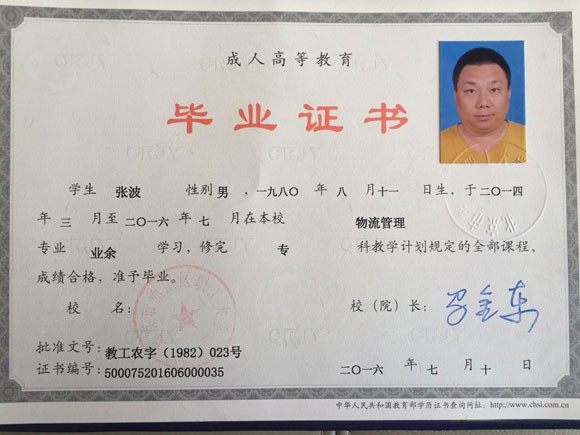 成人高等教育
毕业证书
学生 张波 性别 男 ,一九八〇 年 八 月十一 日生，于二〇一四
年 三 月至二〇一六年 七 月在本校 物流管理
专业 业余 学习，修完 专 科教学计划规定的全部课程，
成绩合格，准予毕业。
校 名： 校（院）长：
批准文号：教工农字（1982）023号
证书编号：500075201606000035
二〇一六 年 七 月 十 日
中华人民共和国教育部学历证书查询网址：http://www.chsi.com.cn